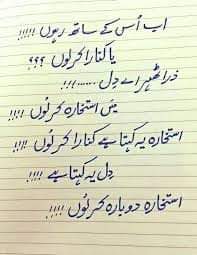 اب اُس کے ساتھ رہوں !!!!!
یا کنارا کرلوں ؟؟؟
ذرا ٹھہر اے دِل ......!!!
میں استخارہ کرلوں !!!!
استخارہ یہ کہتا ہے کنارا کرلوں !!!!
دِل یہ کہتا ہے !!!!
استخارہ دوبارہ کرلوں !!!!